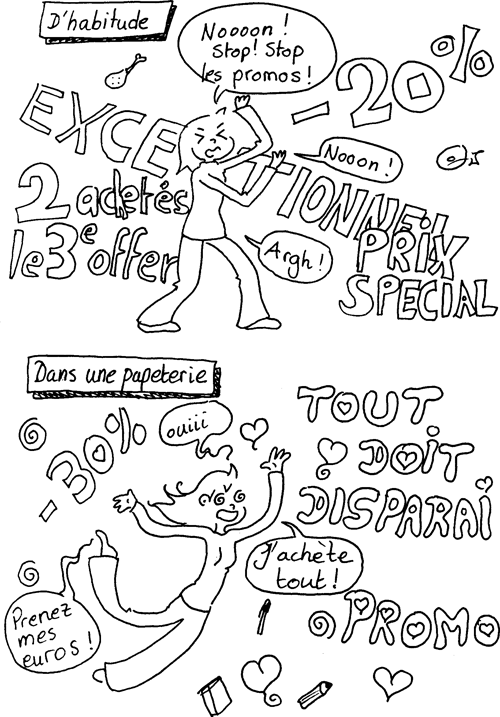 D'habitude
Noooon !
Stop! Stop
les promos !
-20%
EXCE TIONNEL
Nooon !
2 achetés
le 3e offer
Argh !
PRIX
SPECIAL
Dans une papeterie
-30%
ouiii
TOUT
DOIT
DISPARAI
J'achète
tout !
Prenez
mes
euros !
PROMO